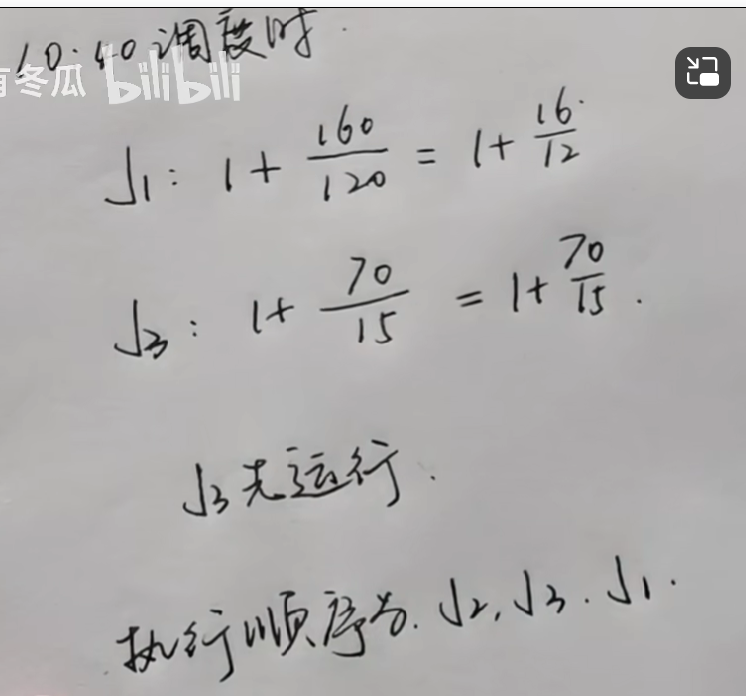 10:40调度时.
有冬瓜 bilibili
J1: 1+160/120=1+16/12
J3: 1+70/15=1+70/15.
J3先运行.
执行顺序为.J2,J3.J1.